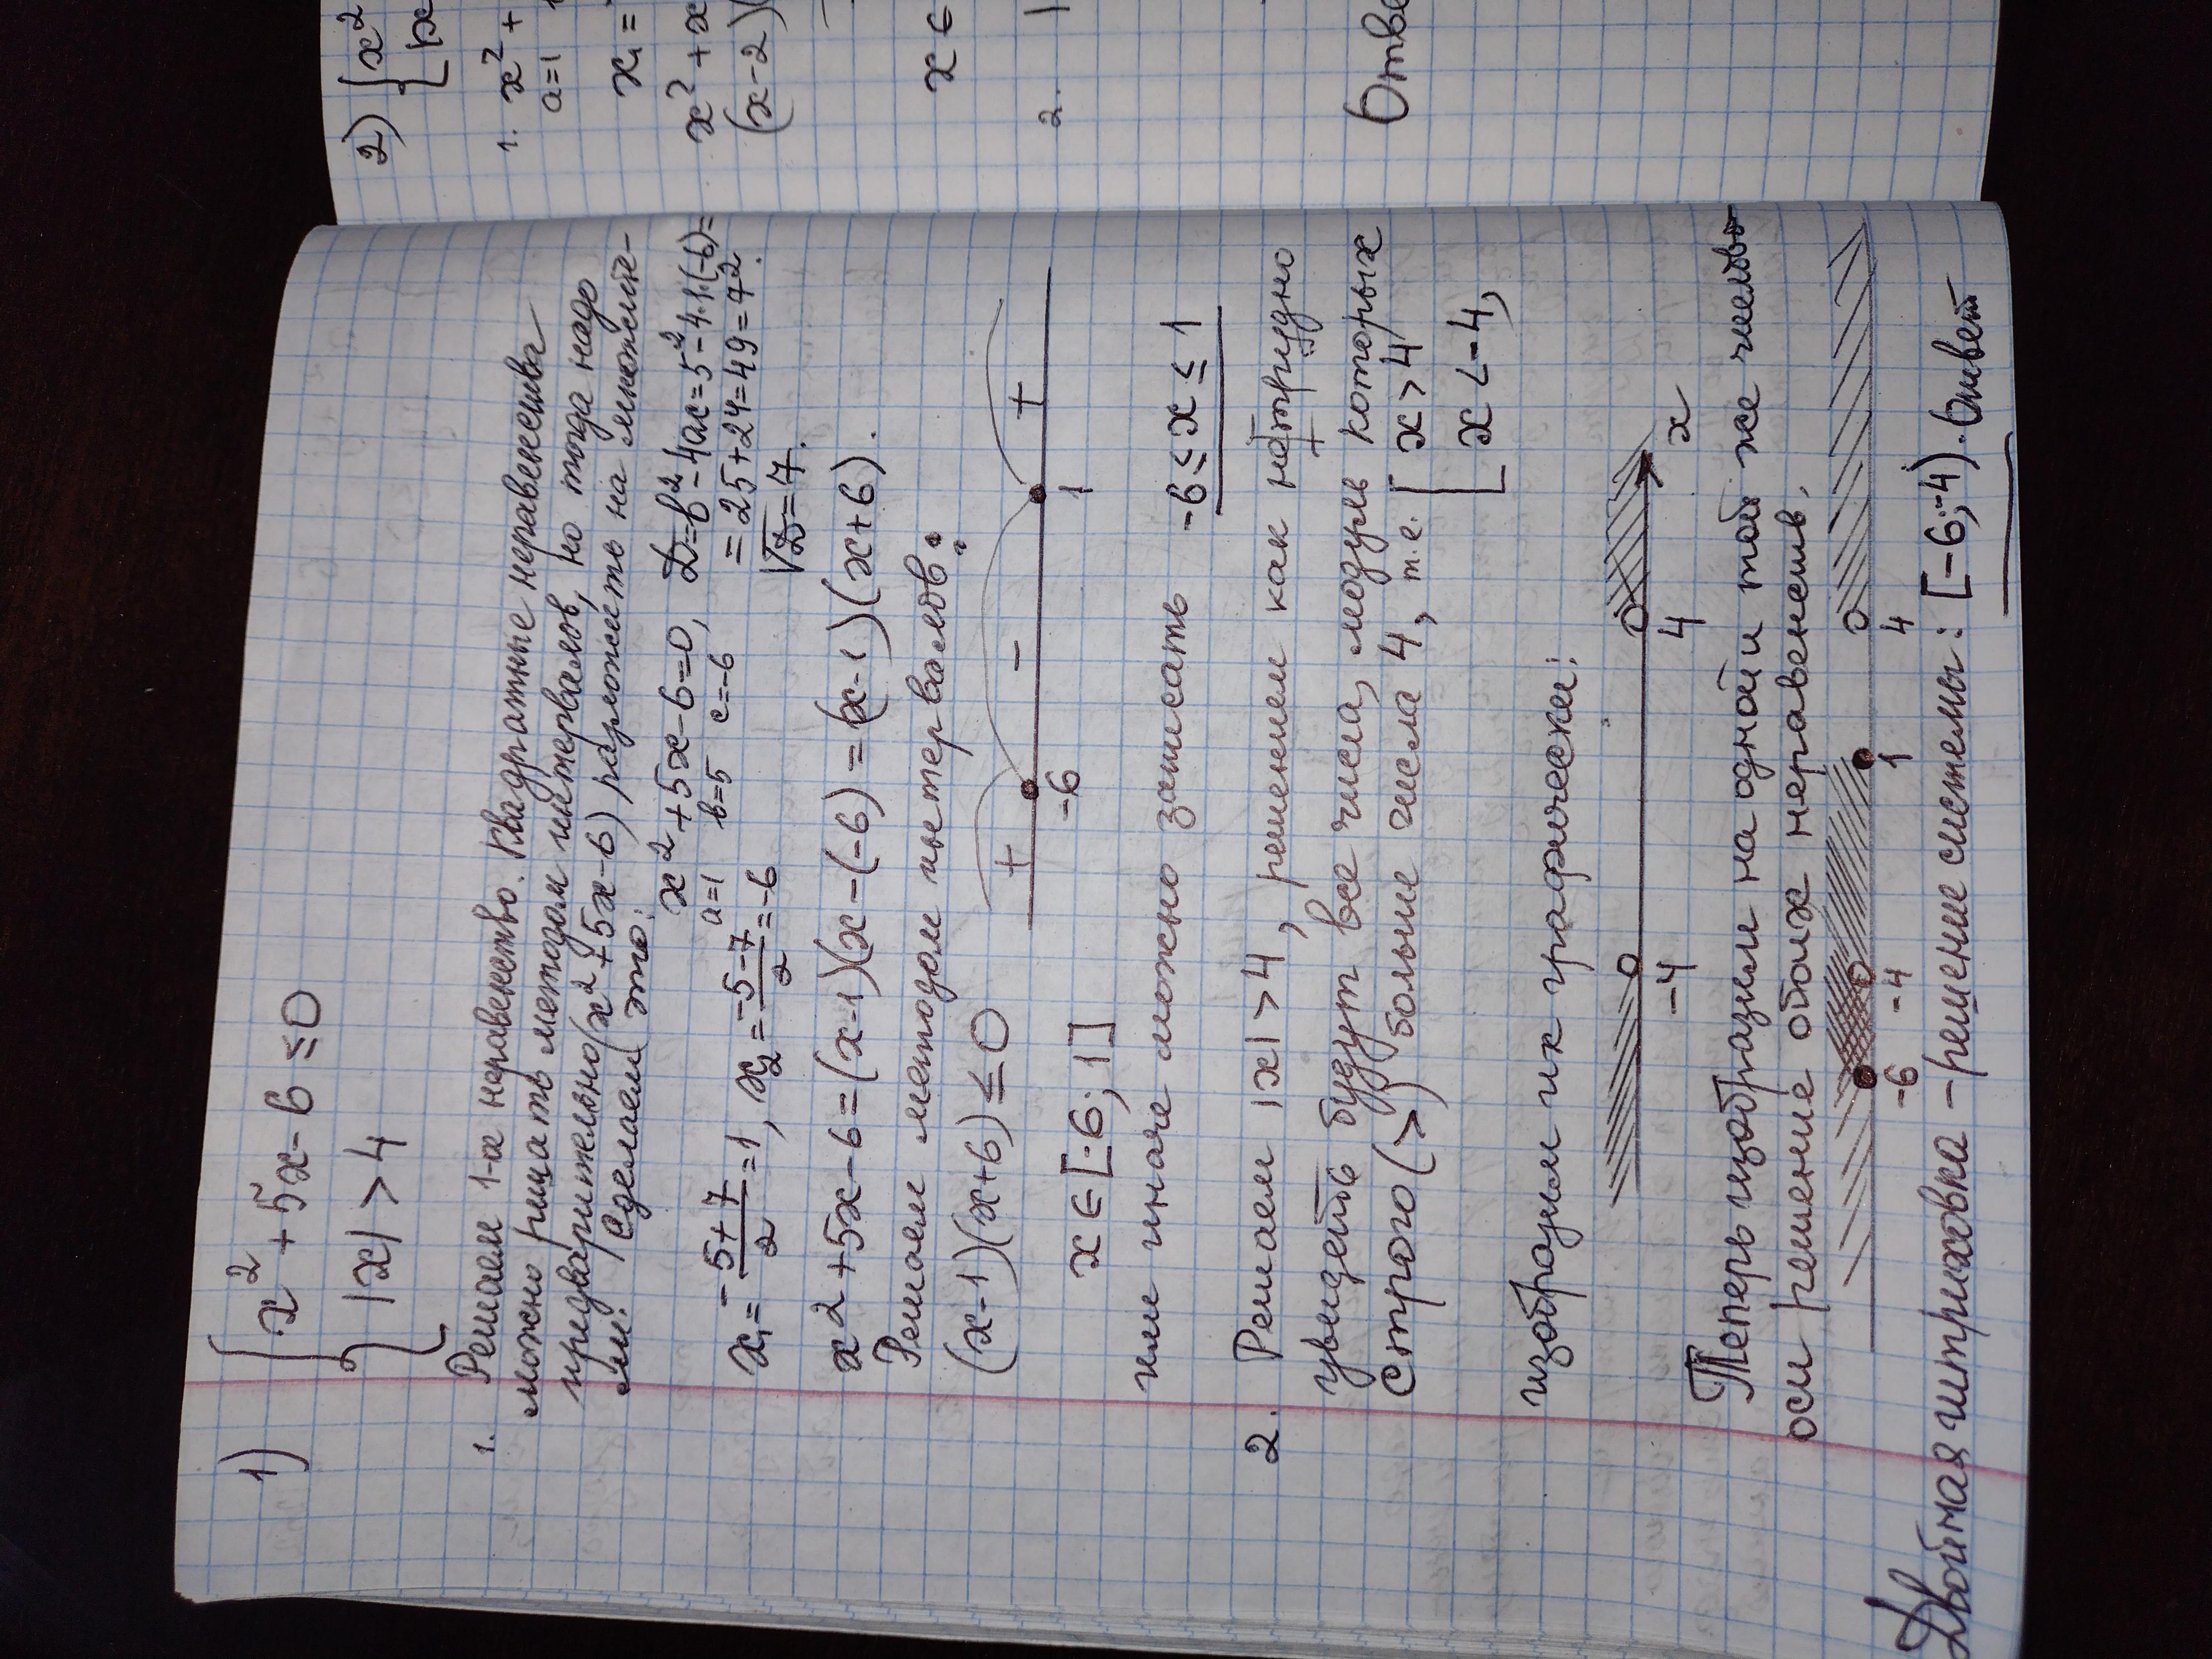 1) { x² + 5x - 6 ≤ 0
|x| > 4
1. Решаем 1-е неравенство. Квадратные неравенства
можно решать методом интервалов, но тогда надо
предварительно (x² + 5x - 6) разложить на множите-
ли. Сделаем это:
x² + 5x - 6 = 0, D = b² - 4ac = 5² - 4·1·(-6) =
a=1 b=5 c=-6 = 25 + 24 = 49 = 7².
√D = 7.
x₁ = (-5+7)/2 = 1, x₂ = (-5-7)/2 = -6
x² + 5x - 6 = (x-1)(x-(-6)) = (x-1)(x+6).
Решаем методом интервалов:
(x-1)(x+6) ≤ 0
+ - +
-6 1
x ∈ [-6; 1]
или иначе можно записать -6 ≤ x ≤ 1
2. Решаем |x| > 4, решением как нетрудно
увидеть будут все числа, модуль которых
строго (>) больше числа 4, т.е. [ x > 4
x < -4,
изобразим их графически:
-4 4 x
Теперь изобразим на одной и той же число
оси решение обоих неравенств.
-6 -4 1 4
Двойная штриховка - решение системы: [-6; -4). Ответ
2) { x²
|x
1. x² +
a=1
x₁ =
x² + x
(x-2)(
x ∈
2.
Отве